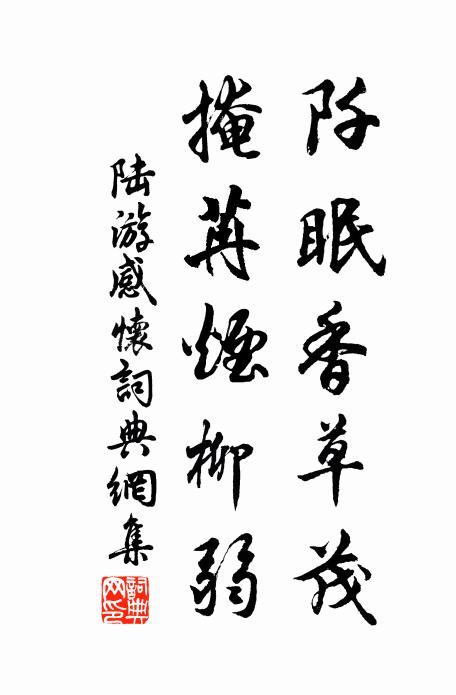 阡眠香草茂
掩苒煙柳弱
陆游感懷詞典網集
詞典網印